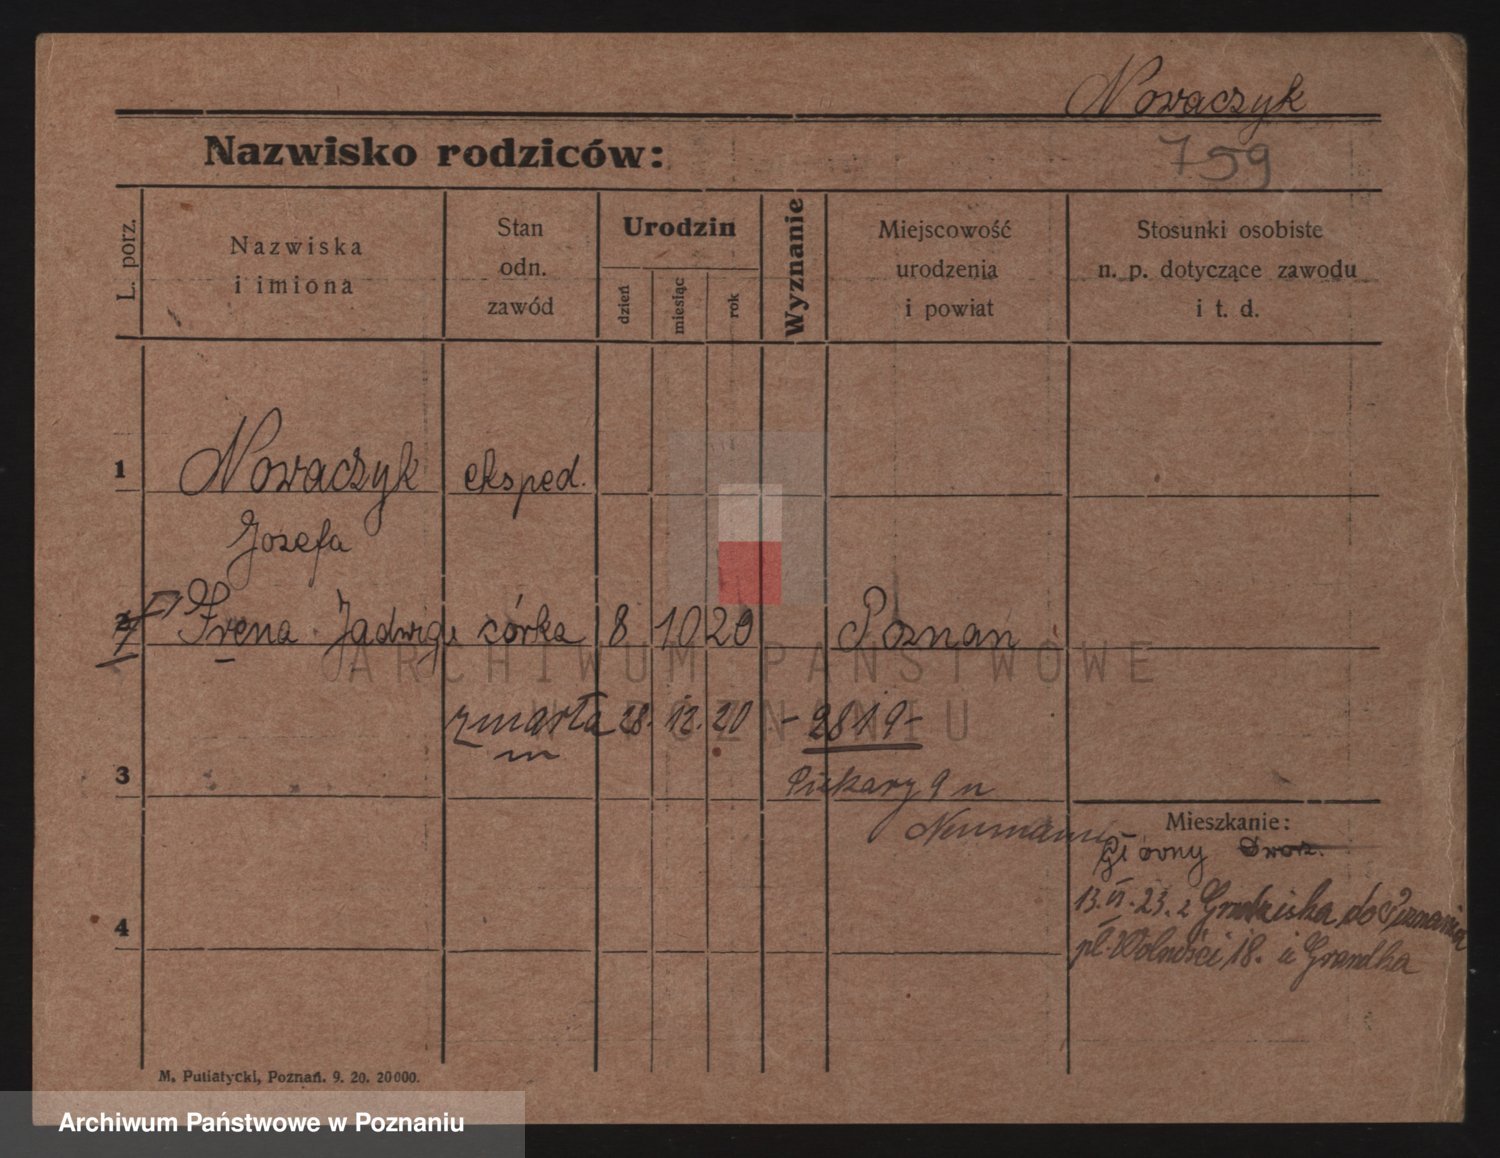 Nowaczyk
759
Nazwisko rodziców:
L. porz.
Nazwiska
i imiona
Stan
odn.
zawód
Urodzin
dzień
miesiąc
rok
Wyznanie
Miejscowość
urodzenia
i powiat
Stosunki osobiste
n. p. dotyczące zawodu
i t. d.
1 Nowaczyk eksped.
Józefa
2 Irena Jadwiga córka 8 10 20 Poznań
ARCHIWUM PAŃSTWOWE
W POZNANIU
zmarła 28. 12. 20 - 2819 -
3 Piekary 9 u
Neumann
Mieszkanie:
Główny Dworz.
13. VI. 23. z Grodziska do Poznania
pl. Wolności 18. u Grandka
4
M. Putiatycki, Poznań. 9. 20. 20000.
Archiwum Państwowe w Poznaniu